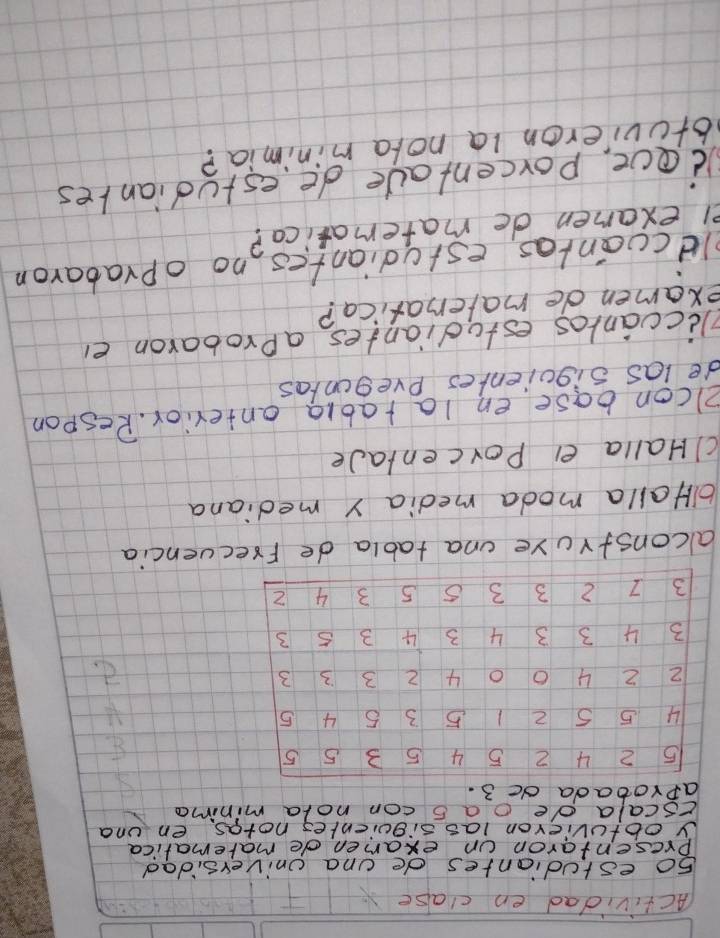 Actividad en clase
50 estudiantes de una universidad
Presentaron un examen de matematica
y obtuvieron las siguientes notas, en una
escala de 0 a 5 con nota minima
aprobada de 3.
5 2 4 2 5 4 5 3 5 5
4 5 5 2 1 5 3 5 4 5
2 2 4 0 0 4 2 3 3 3
3 4 3 3 4 3 4 3 5 3
3 1 2 3 3 5 5 3 4 2
a) construye una tabla de Frecuencia
b) Halla moda media y mediana
c) Halla el Porcentaje
2) con base en la tabla anterior. Respon
de las siguientes preguntas
¿cuántos estudiantes aprobaron el
examen de matematica?
¿cuántas estudiantes, no aprabaron
el examen de matematica?
¿Que, porcentaje de estudiantes
obtuvieron la nota minimia?